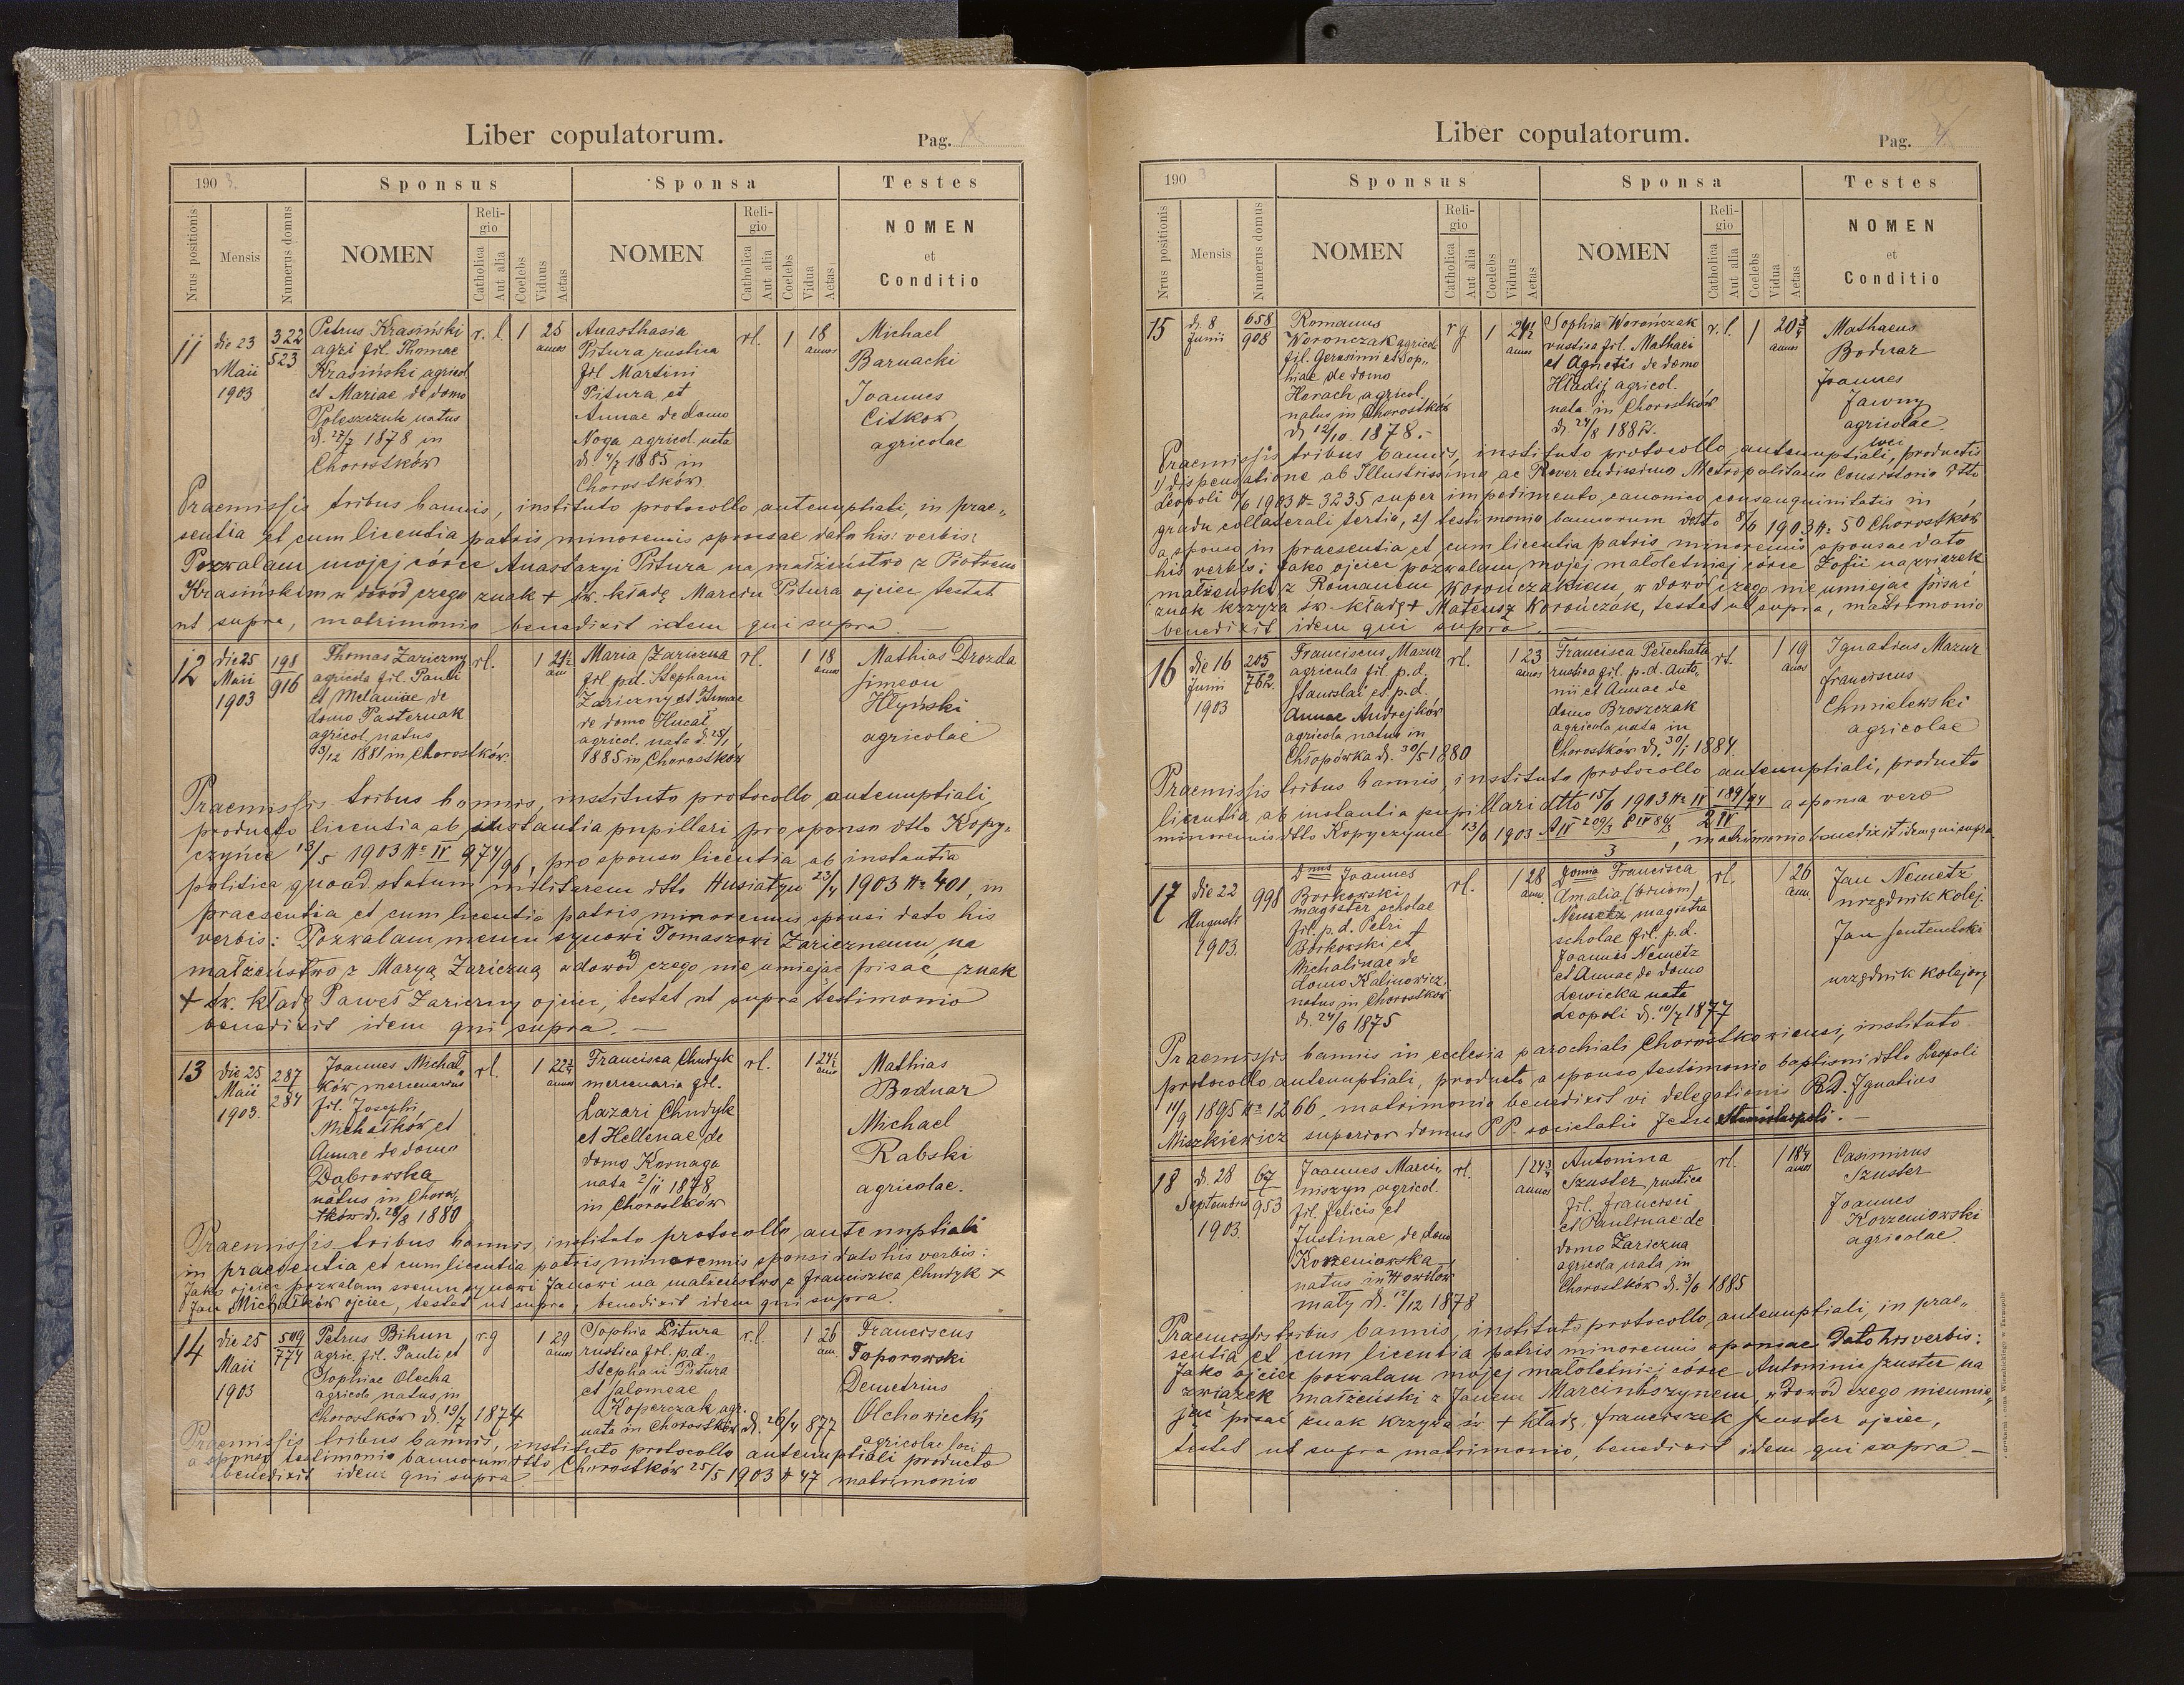 99
Liber copulatorum.
Pag. X
1903.
Sponsus
Sponsa
Testes
Nrus positionis
Mensis
Numerus domus
NOMEN
Religio
Catholica
Aut alia
Coelebs
Viduus
Aetas
NOMEN
Religio
Catholica
Aut alia
Coelebs
Vidua
Aetas
NOMEN
et
Conditio
11
die 23
Maii
1903
322
523
Petrus Krasiński
agri fil. Thomae
Krasiński agricol
et Mariae de domo
Poleszczuk natus
d. 27/7 1878 in
Chorostków
r. l.
1
25
annos
Anasthasia
Pitura rustica
fil Martini
Pitura et
Annae de domo
Noga agricol. nata
d. 4/7 1885 in
Chorostków.
rl.
1
18
annos
Michael
Barnacki
Joannes
Citkow
agricolae
Praemissis tribus bannis, instituto protocollo antenuptiali, in prae„
sentia et cum licentia patris minorennis sponsae dato his: verbis:
Pozwalam mojej córce Anastazyi Pitura na małżeństwo z Piotrem
Krasińskim w dowód czego znak + św. kładę Marcin Pitura ojciec testat
ut supra, matrimonio benedixit idem qui supra
12
die 25
Maii
1903
198
916
Thomas Zariczny
agricola fil. Pauli
et Melaniae de
domo Pasternak
agricol. natus
13/12 1881 in Chorostków.
rl.
1
21½
ann
Maria Zariczna
fil pd. Stephani
Zariczny et Annae
de domo Hucał
agricol. nata d. 25/1
1885 in Chorostków
rl.
1
18
annos
Mathias Drozda
Simeon
Hłyński
agricolae
Praemissis tribus bannis, instituto protocollo antenuptiali,
producto licentia ab instantia pupillari pro sponsa dtto Kopy„
czyńce 13/5 1903 № IV 974/96, pro sponso licentia ab instantia
politica quoad statum militarem dtto Husiatyn 23/4 1903 № 401, in
praesentia et cum licentia patris minorennis sponsi dato his
verbis: Pozwalam memu synowi Tomaszowi Zaricznemu na
małżeństwo z Maryą Zariczną w dowód czego nie umiejąc pisać znak
+ św. kładę Paweł Zariczny ojciec, testat ut supra testimonio
benedixit idem qui supra. —
13
die 25
Maii
1903.
287
284
Joannes Michał„
ków mercenarius
fil. Josephi
Michałków et
Annae de domo
Dąbrowska
natus in Choros„
tków d. 28/8 1880
rl.
1
22¾
annos
Francisca Chudyk
mercenaria fil.
Lazari Chudyk
et Hellenae de
domo Kornaga
nata 2/11 1878
in Chorostków
rl.
1
24½
anno
Mathias
Bodnar
Michael
Rabski
agricolae.
Praemissis tribus bannis, instituto protocollo antenuptiali
in praesentia et cum licentia patris minorennis sponsi dato his verbis:
Jako ojciec pozwalam swemu synowi Janowi na małżeństwo z Franciszką Chudyk +
Jan Michałków ojciec, testat ut supra, benedixit idem qui supra.
14
die 25
Maii
1903
509
774
Petrus Bihun
agric. fil. Pauli et
Sophiae Olecha
agricola natus in
Chorostków d. 19/7 1874
r. g
1
29
annos
Sophia Pitura
rustica fil. p.d.
Stephani Pitura
et Salomeae
Koperczak agr.
nata in Chorostków d. 26/4 877
r. l.
1
26
an.
Franciscus
Toporowski
Demetrius
Olchowiecki
agricolae loci
Praemissis tribus bannis, instituto protocollo antenuptiali producto
a sponso testimonio bannorum dtto Chorostków 25/5 1903 № 47 matrimonio
benedixit idem qui supra
100
Liber copulatorum.
Pag. 4
1903
Sponsus
Sponsa
Testes
Nrus positionis
Mensis
Numerus domus
NOMEN
Religio
Catholica
Aut alia
Coelebs
Viduus
Aetas
NOMEN
Religio
Catholica
Aut alia
Coelebs
Vidua
Aetas
NOMEN
et
Conditio
15
d. 8
Junii
658
908
Romanus
Worończak agricol
fil. Gerasimi et Sop„
hiae de domo
Horach agricol.
natus in Chorostków
d. 12/10. 1878.-
r g.
1
24½
annos
Sophia Worończak
rustica fil. Mathaei
et Agnetis de domo
Hładij agricol.
nata in Chorostków
d. 24/8 1882.
r. l.
1
20¾
annos
Mathaeus
Bodnar
Joannes
Jawny
agricolae
loci
Praemissis tribus bannis, instituto protocollo antenuptiali, productis
1) dispensatione ab Illustrissimo ac Reverendissimo Metropolitano Consistorio dtto
Leopoli 1/6 1903 № 3235 super impedimento canonico consanguinitatis in
gradu collaterali tertio, 2) testimonio bannorum dtto 8/6 1903 № 50 Chorostków
a sponso in praesentia et cum licentia patris minorennis sponsae dato
his verbis: Jako ojciec pozwalam mojej małoletniej córce Zofii na związek
małżeński z Romanem Worończakiem, w dowód czego nie umiejąc pisać
znak krzyża św. kładę + Mateusz Worończak, testat ut supra, matrimonio
benedixit idem qui supra. —
16
die 16
Junii
1903
205
762
Franciscus Mazur
agricola fil. p.d.
Stanislai et p.d.
Annae Andrejków
agricola natus in
Chłopówka d. 30/5 1880
rl.
1
23
annos
Francisca Pełechata
rustica fil. p.d. Anto„
nii et Annae de
domo Broszczak
agricola nata in
Chorostków d. 30/1 1884.
rl.
1
19
anos
Ignatius Mazur
Franciscus
Chmielewski
agricolae
Praemissis tribus bannis, instituto protocollo antenuptiali, producto
licentia ab instantia pupillari dtto 15/6 1903 № IV 189/94 a sponsa vero
minorennis dtto Kopyczyńce 13/6 1903 A IV 209/3 P IV 86/3 2 IV
3
, matrimonio benedixit idem qui supra
17
die 22
Augusti
1903.
998
Dnus Joannes
Borkowski
magister scholae
fil. p.d. Petri
Borkowski et
Michalinae de
domo Kalinowicz,
natus in Chorostków
d. 24/6 1875
rl.
1
28
ann.
Domia Francisca
Amalia (binom)
Nemetz magistra
scholae fil. p.d.
Joannis Nemetz
et Annae de domo
Lewicka nata
Leopoli d. 10/7 1877
rl.
1
26
ann.
Jan Nemetz
urzędnik kolej.
urzędnik kolejowy
Praemissis bannis in ecclesia parochiali Chorostkowiensi, instituto
protocollo antenuptiali, producto a sponso testimonio baptismi dtto Leopoli
11/9 1895 № 1266, matrimonio benedixit vi delegationis RD. Ignatius
Miszkiewicz superior domus P.P. societatis Jesu Stanislaopoli. —
18
d. 28
Septembris
1903.
67
953
Joannes Marci„
niszyn agricol.
fil. Felicis et
Justinae de domo
Korzeniowska
natus in Howiłow
mały d. 12/12 1878
rl.
1
24¾
annos
Antonina
Szuster rustica
fil. Francisci
et Paulinae de
domo Zariczna
agricola nata in
Chorostków d. 3/6 1885
rl.
1
18¼
annos
Casimirus
Szuster
Joannes
Korzeniowski
agricolae.
Praemissis tribus bannis, instituto protocollo antenuptiali, in prae„
sentia et cum licentia patris minorennis sponsae dato his verbis:
Jako ojciec pozwalam mojej małoletniej córce Antoninie Szuster na
związek małżeński z Janem Marciniszynem, w dowód czego nieumie„
jąc pisać znak krzyża św + kładę, Franciszek Szuster ojciec,
testat ut supra matrimonio, benedixit idem qui supra —